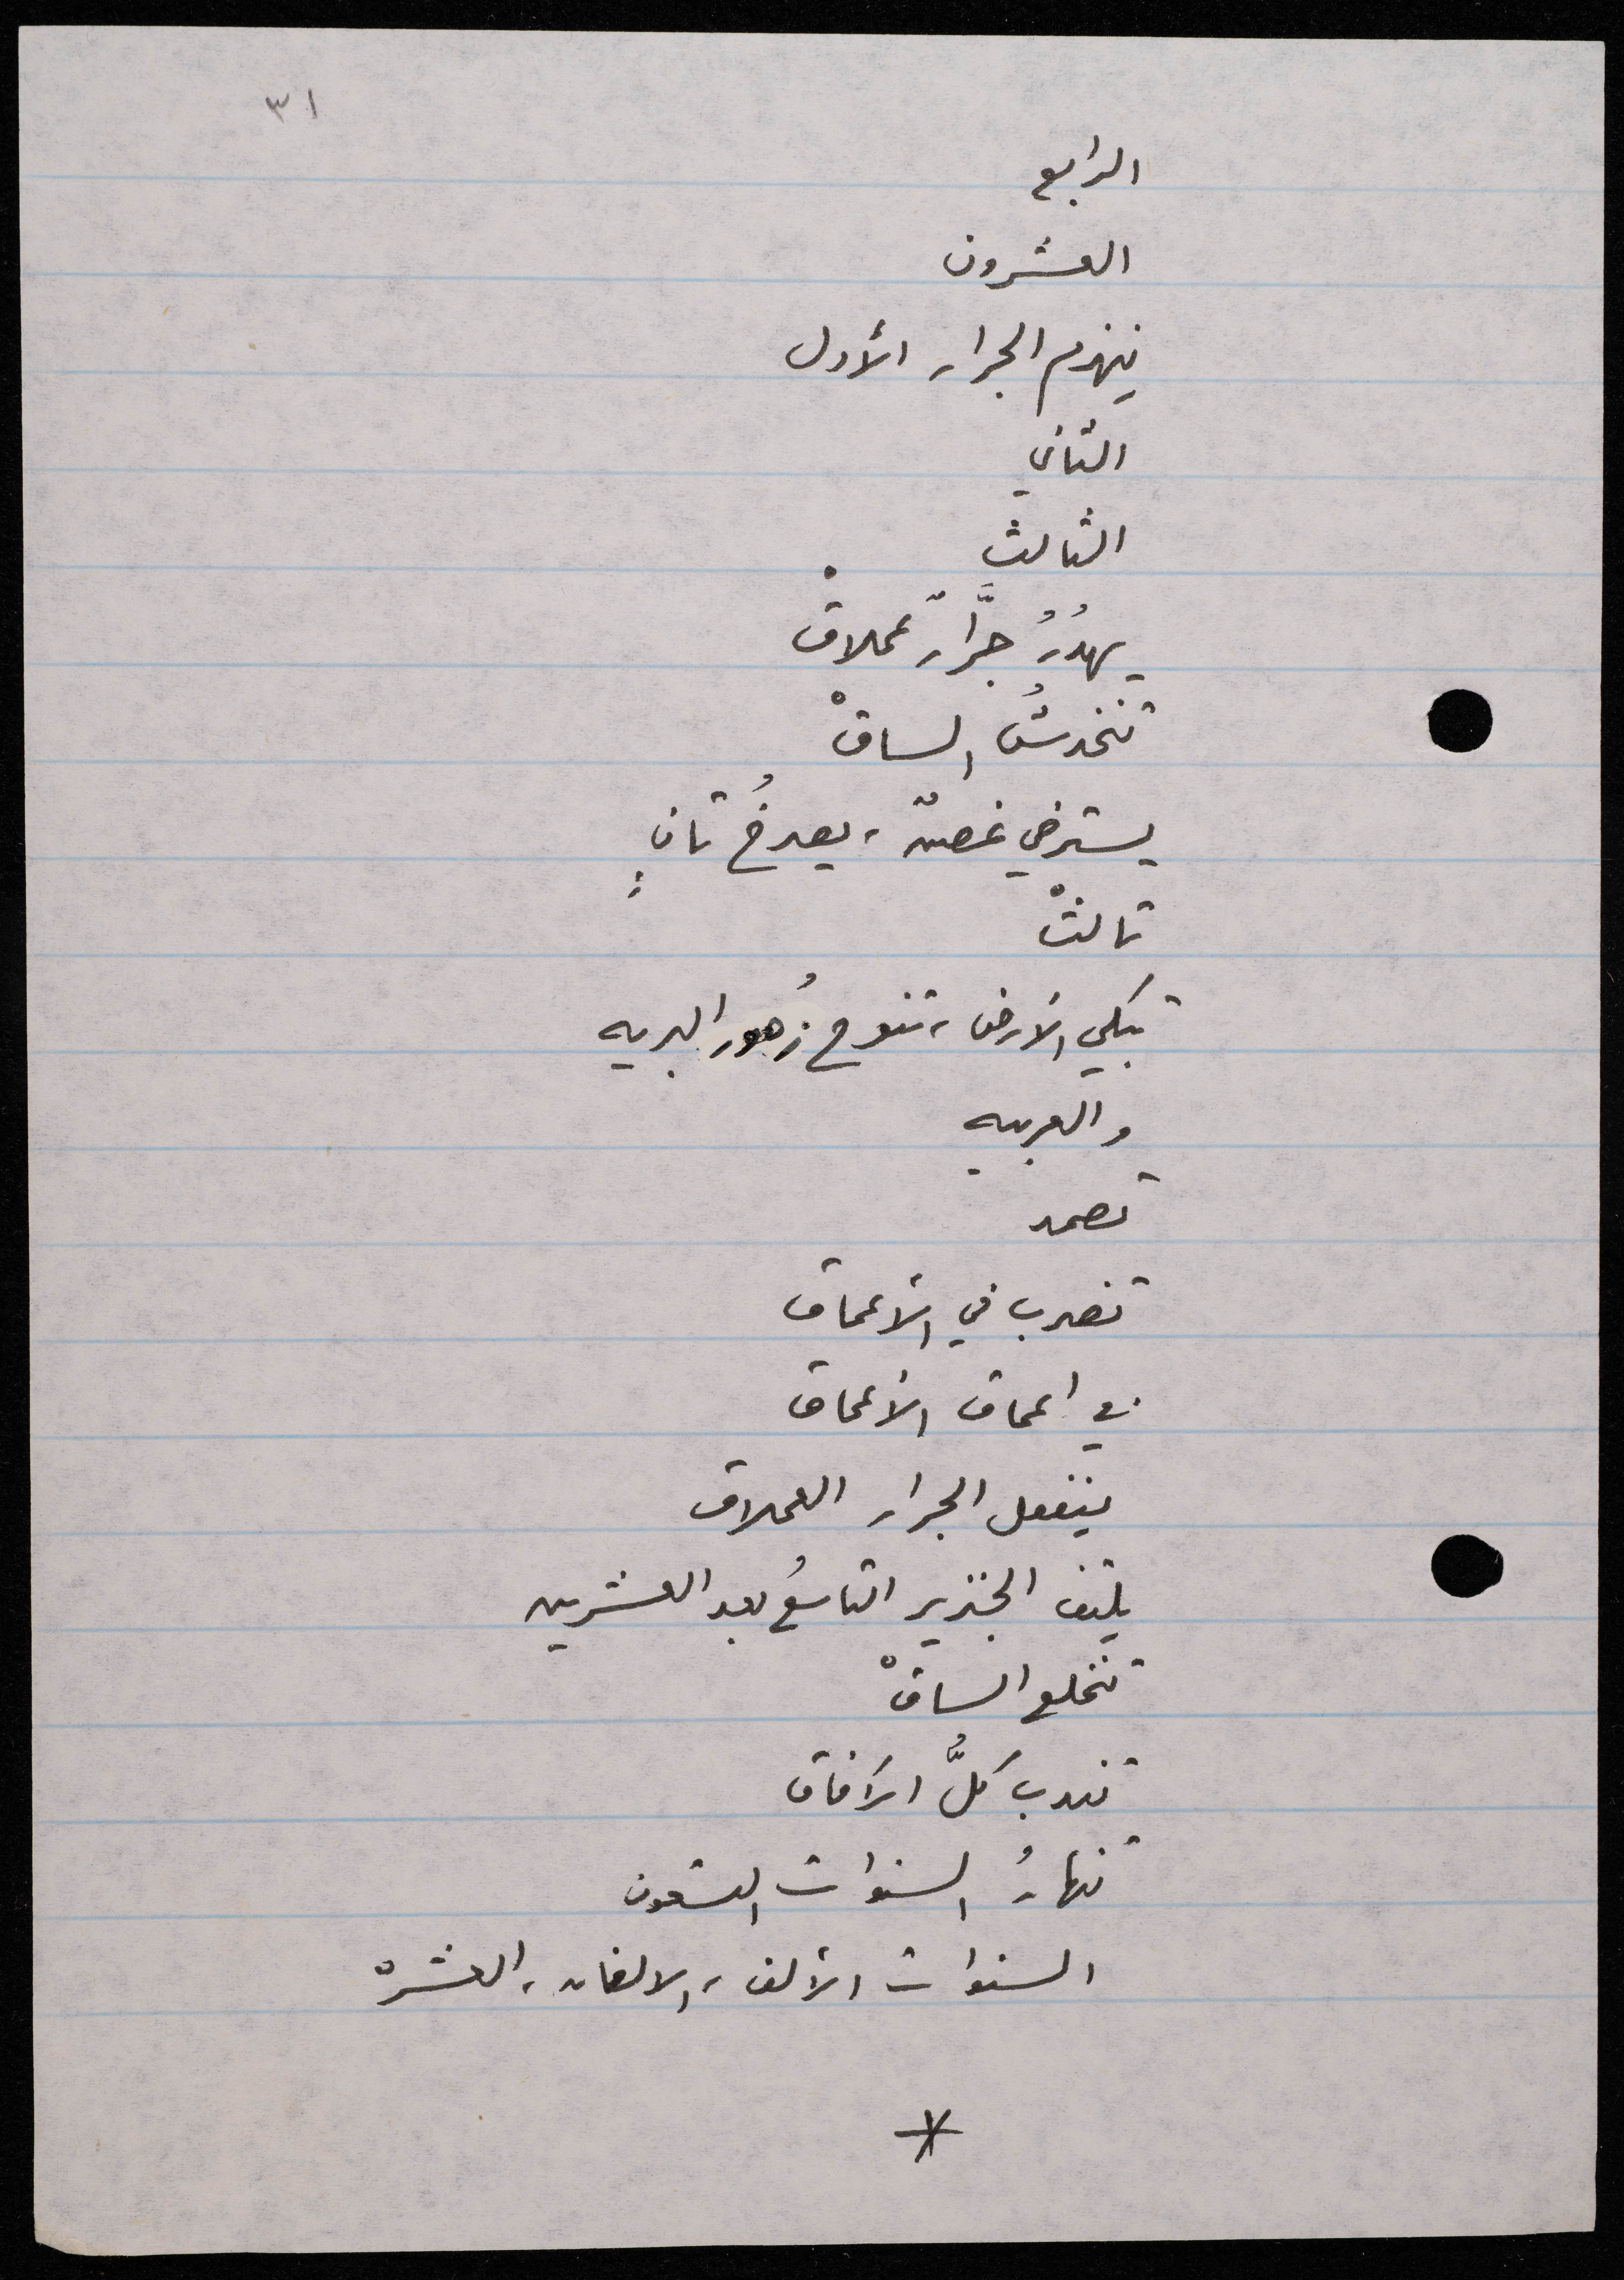 ٣١
الرابع
العشرون
ينهزم الجرار الأول
الثاني
الثالث
يهدُرُ جرَّارٌ عملاقْ
تنخدشُ الساقْ
يسترخي غصنٌ، يصرخُ ثانٍ
ثالثْ
تبكي الأرض، تنوح زُهور البريه
والعربيه
تصمد
تضرب في الأعماق
في اعماق الأعماق
ينفعل الجرار العملاق
يلتف الجنزير التاسعُ بعد العشرين
تنخلع الساقْ
تندب كلُّ الآفاق
تنهارُ السنوات التسعون
السنوات الألف، الالفان، العشره
*